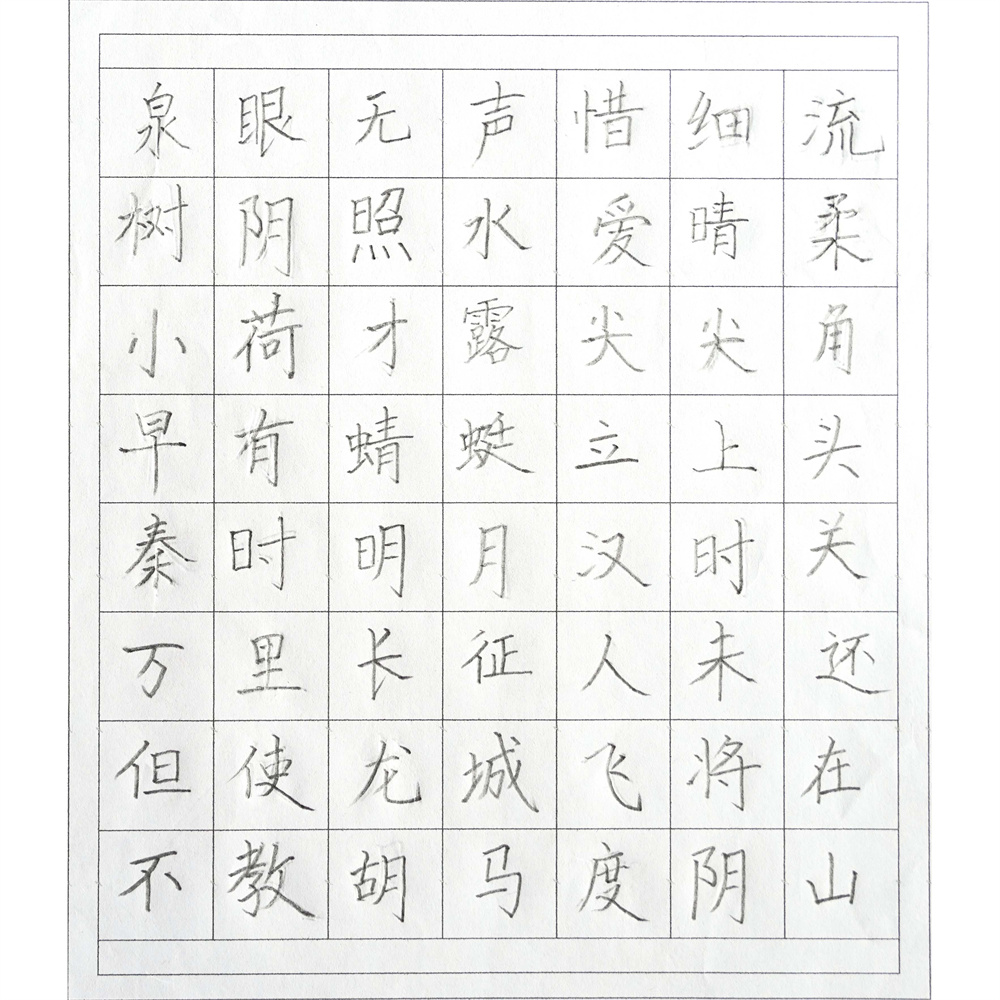 泉眼无声惜细流
树阴照水爱晴柔
小荷才露尖尖角
早有蜻蜓立上头
秦时明月汉时关
万里长征人未还
但使龙城飞将在
不教胡马度阴山